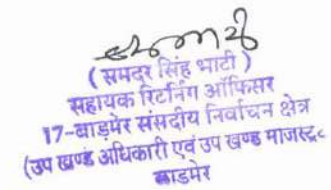 ( समदर सिंह भाटी )
सहायक रिटर्निंग ऑफिसर
17-बाड़मेर संसदीय निर्वाचन क्षेत्र
(उप खण्ड अधिकारी एवं उप खण्ड माजस्ट्र
बाडमेर